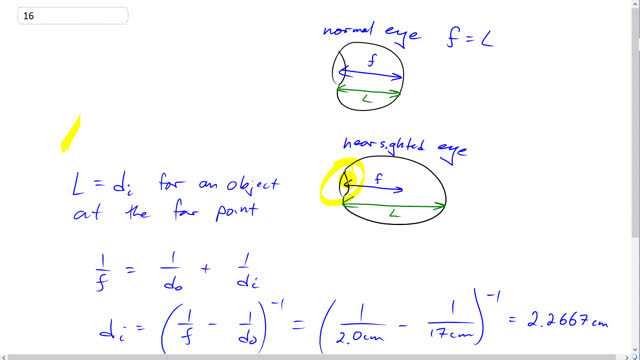 16
normal eye f = L
f
L
nearsighted eye
f
L
L = di for an object
at the far point
1/f = 1/do + 1/di
di = (1/f - 1/do)^-1 = (1/2.0cm - 1/17cm)^-1 = 2.2667cm